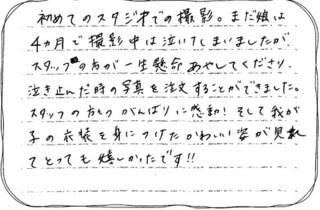 初めてのスタジオでの撮影。まだ娘は
4カ月で撮影中は泣いてしまいましたが、
スタッフの方が一生懸命あやしてくださり、
泣き止んだ時の写真を注文することができました。
スタッフの方々のがんばりに感動!そして我が
子の衣装を身につけたかわいい姿が見れ
てとっても嬉しかったです!!